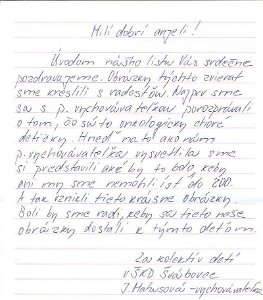 Milí dobrí anjeli!
Úvodom nášho listu Vás srdečne
pozdravujeme. Obrázky týchto zvierat
sme kreslili s radosťou. Najprv sme
sa s p. vychovávateľkou porozprávali
o tom, čo sú to onkologicky choré
detičky. Hneď na to ako nám
p. vychovávateľka vysvetlila sme
si predstavili aké by to bolo, keby
oni my sme nemohli ísť do ZOO.
A tak vznikli tieto krásne obrázky.
Boli by sme radi, keby sa tieto naše
obrázky dostali k týmto deťom.
Za kolektív detí
v ŠKD Švábovce
J. Matusová - vychovávateľka